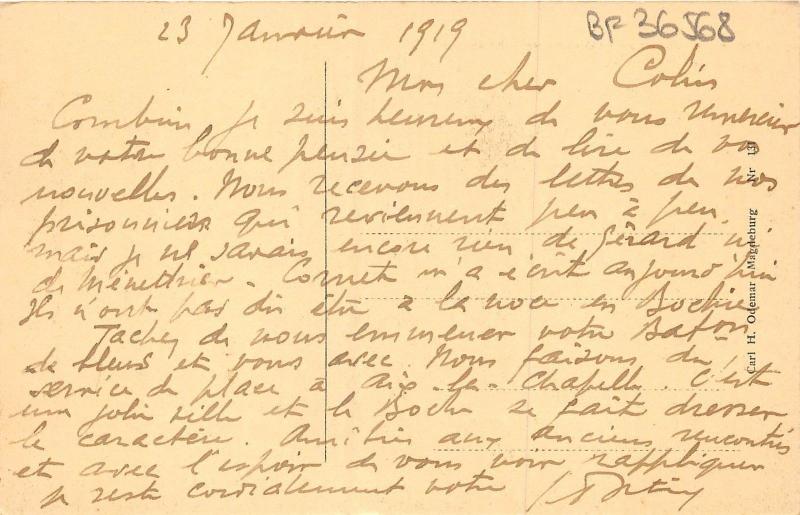 23 Janvier 1919
BF 36568
Mon cher Colin
Combien je suis heureux de vous remercier
de votre bonne pensée et de lire de vos
nouvelles. Nous recevons des lettres de nos
prisonniers qui reviennent peu à peu,
mais je ne savais encore rien de Gérard ni
de Ménettrier. Cornet m'a écrit aujourd'hui
Ils n'ont pas dû être à la noce en Bochie
Tachez de nous emmener votre Baton
de bleus et vous avec. Nous faisons du
service de place à Aix-la-Chapelle. C'est
une jolie ville et le Boche se fait dresser
le caractère. Amitiés aux anciens rencontrés
et avec l'espoir de vous voir rappliquer
je reste cordialement votre
Carl H. Odemar Magdeburg Nr 131